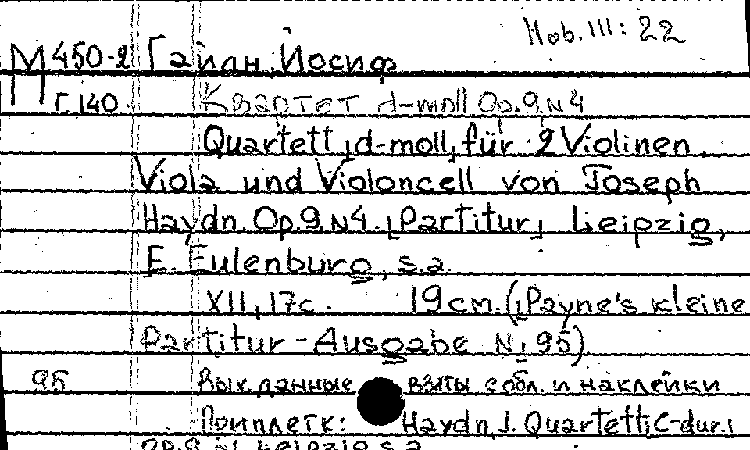 Hob. III: 22
М 450-2 Гайдн, Йосиф
Г.140. Квартет d-moll Op.9 N4
Quartett, d-moll, für 2 Violinen,
Viola und Violoncell von Joseph
Haydn. Op.9. N4. [Partitur] Leipzig,
E. Eulenburg, s.a.
XII, 17с. 19 cm. ([Payne's kleine
Partitur-Ausgabe N. 95)
95 Вых. данные взяты с обл. и наклейки
Приплетк: Haydn, J. Quartett, C-dur.
op.9 N1 Leipzig s.a.